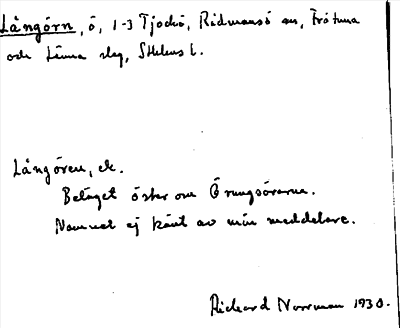 Långörn, ö, 1-3 Tjockö, Rådmansö sn, Frötuna
och Länna slg, Sthlms l.
Långören, ek.
Beläget öster om Örungsörarna.
Namnet ej känt av min meddelare.
Rickard Norrman 1930.